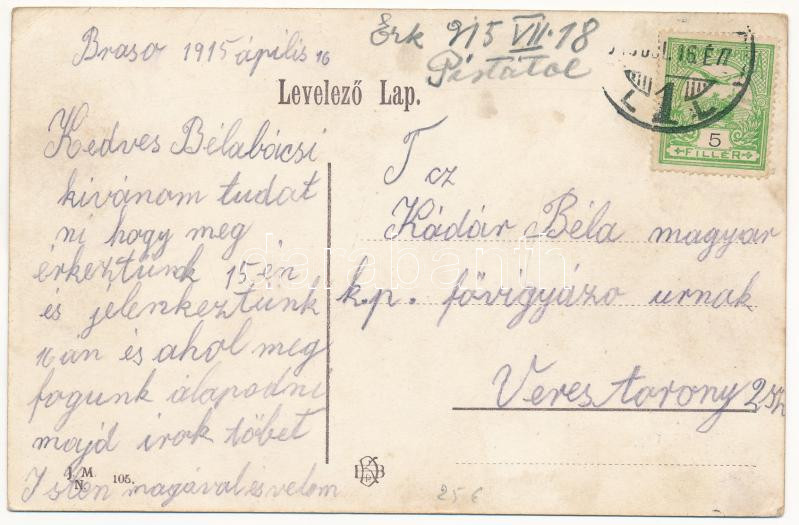 Braso 1915 ápilis 16
Erk 915 VII. 18
Pistától
Levelező Lap.
Kedves Bélabácsi
kivánom tudat
ni hogy meg
érkeztünk 15-én
és jelenkeztünk
16 án és ahol meg
fogunk álapodni
majd irok töbet
Isten magával és velom
T cz
Kádár Béla magyar
k.p. fővigyázo urnak
Veres torony
5
FILLÉR
1
J. M.
N. 105.
25 €
darabanth